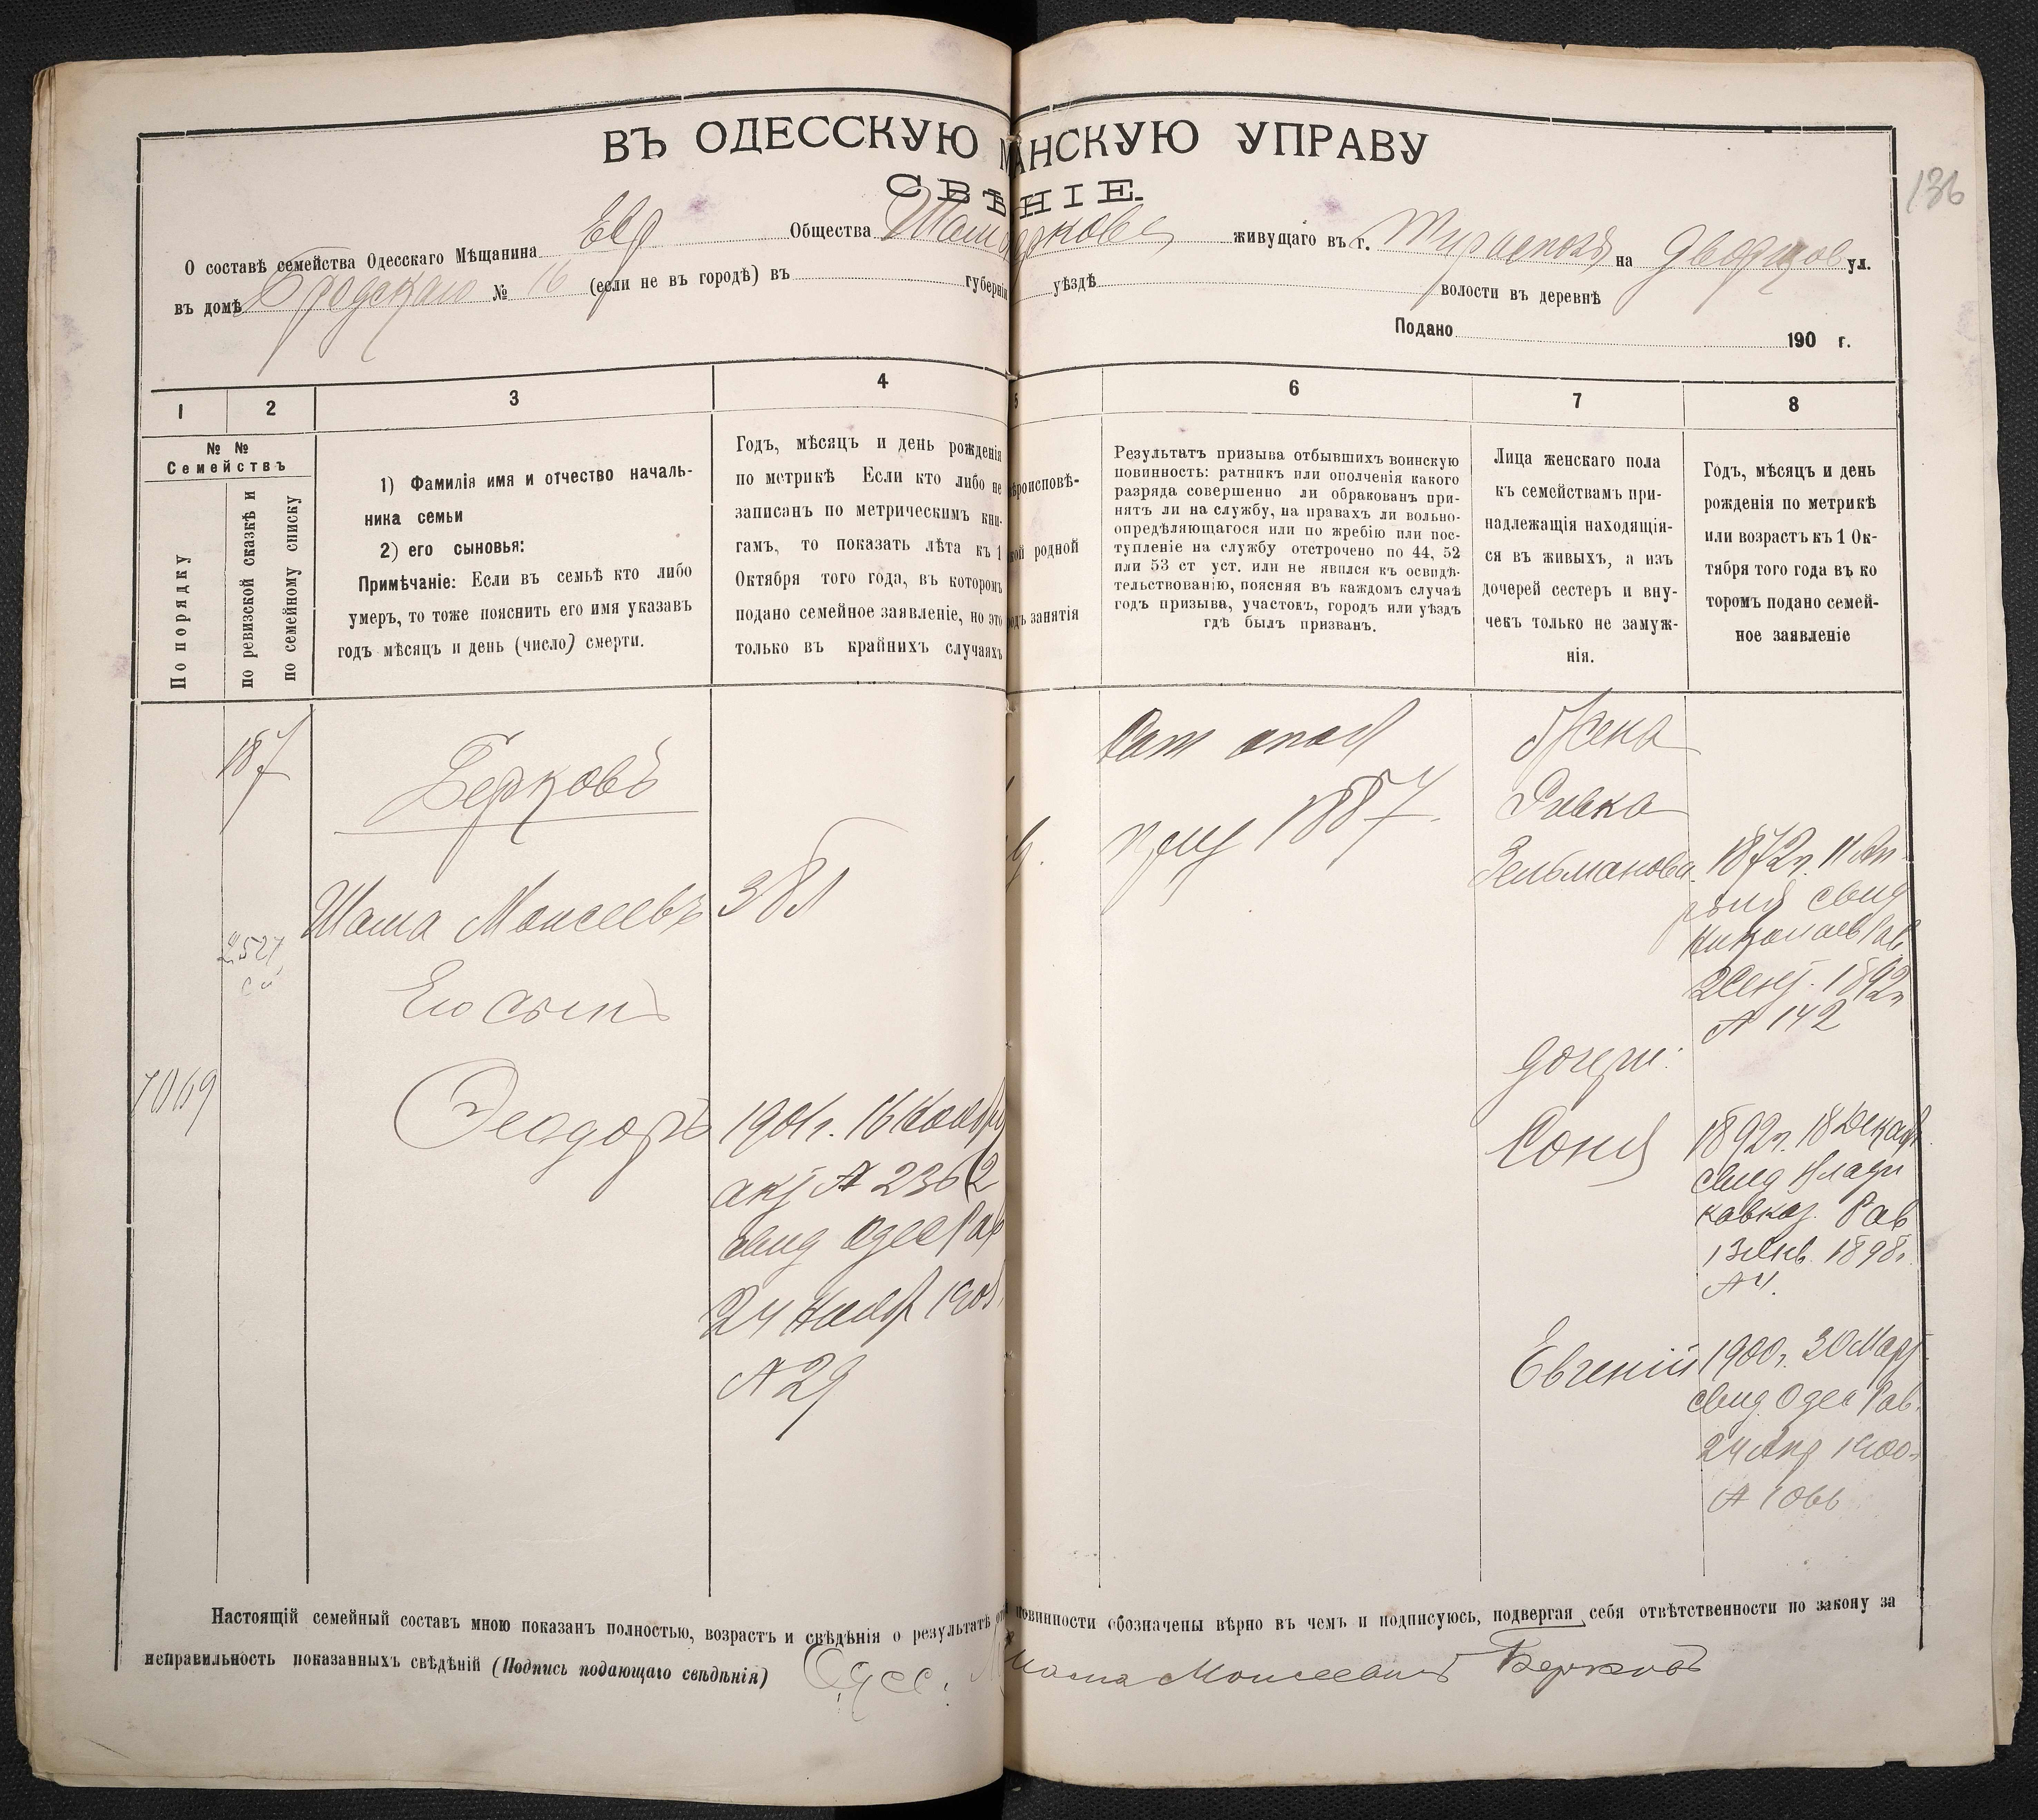 ВЪ ОДЕССКУЮ МѢЩАНСКУЮ УПРАВУ
СВѢДѢНІЕ.
136
О составѣ семейства Одесскаго Мѣщанина Евр Общества Шаши Беркова живущаго въ г. Тирасполь на Дворцов ул.
въ домѣ Бродскаго № 16 (если не въ городѣ) въ губерніи уѣздѣ волости въ деревнѣ
Подано 190 г.
1 2 3 4 5 6 7 8
№ №
Семействъ
По порядку
по ревизской сказкѣ и
по семейному списку
1) Фамилія имя и отчество началь-
ника семьи
2) его сыновья:
Примѣчаніе: Если въ семьѣ кто либо
умеръ, то тоже пояснить его имя указавъ
годъ мѣсяцъ и день (число) смерти.
Годъ, мѣсяцъ и день рожденія
по метрикѣ Если кто либо не
записанъ по метрическимъ кни-
гамъ, то показать лѣта къ 1
Октября того года, въ которомъ
подано семейное заявленіе, но это
только въ крайнихъ случаяхъ
ѣроисповѣ-
кой родной
одъ занятія
Результатъ призыва отбывшихъ воинскую
повинность: ратникъ или ополченія какого
разряда совершенно ли обракованъ при-
нятъ ли на службу, на правахъ ли вольно-
опредѣляющагося или по жребію или пос-
тупленіе на службу отстрочено по 44, 52
или 53 ст уст. или не явился къ освидѣ-
тельствованію, поясняя въ каждомъ случаѣ
годъ призыва, участокъ, городъ или уѣздъ
гдѣ былъ призванъ.
Лица женскаго пола
къ семействамъ при-
надлежащія находящія-
ся въ живыхъ, а изъ
дочерей сестеръ и вну-
чекъ только не замуж-
нія.
Годъ, мѣсяцъ и день
рожденія по метрикѣ
или возрастъ къ 1 Ок-
тября того года въ ко
торомъ подано семей-
ное заявленіе
187
Берковъ
Шаша Моисеевъ
38 л
2527
Его сынъ
7069
Теодоръ
1901 г. 16 Ноября
акт № 2362
свид Одес Рав
24 Нояб 190
№ 29
приз 1887.
Жена
Ривка
Зельманова
1872 г. 11 Ап
рѣля свид
Николаев Рав
2 Сент. 1892 г
№ 142
Дочери:
Соня
1892 г. 18 Декаб
свид Влади
кавказ. Рав
13 Янв. 1898 г.
№ 4.
Евгенія
1900 г. 30 Март
свид. Одес Рав.
24 Апр 1900 г
№ 1066
Настоящій семейный составъ мною показанъ полностью, возрастъ и свѣдѣнія о результатѣ повинности обозначены вѣрно въ чемъ и подписуюсь, подвергая себя отвѣтственности по закону за
неправильность показанныхъ свѣдѣній (Подпись подающаго свѣдѣнія) Одес. Шаша Моисеевичъ Берковъ